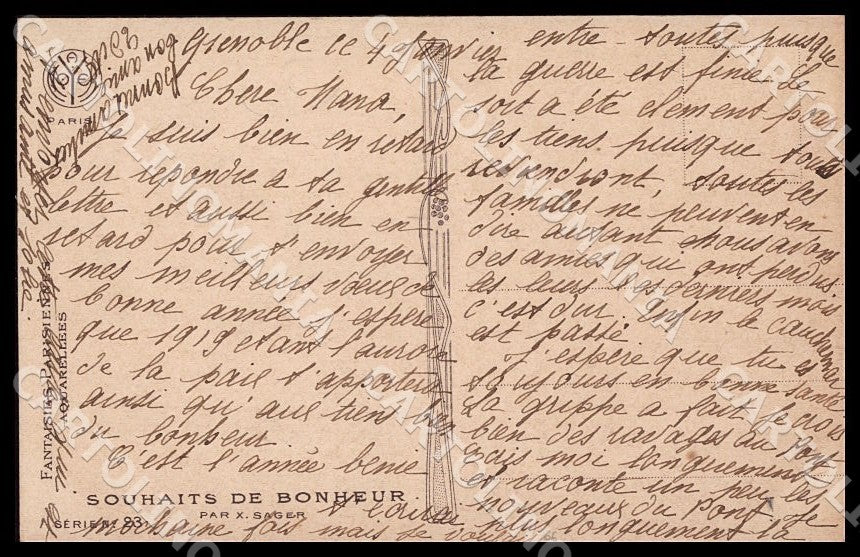 Grenoble ce 4 Janvier
Chere Nana,
Je suis bien en retard
pour repondre a ta gentille
lettre et aussi bien en
retard pour t'envoyer
mes meilleurs vœux de
bonne année. J'espere
que 1919 etant l'aurore
de la paix t'apportera
ainsi qu'aux tiens bien
du bonheur
C'est l'année benie
entre toutes puisque
la guerre est finie le
sort a été clement pour
les tiens puisque tous
reviendront, toutes les
familles ne peuvent en
dire autant nous avons
des amies qui ont perdus
les leurs les derniers mois
c'est dur. Enfin le cauchemar
est passé
J'espère que tu es
toujours en bonne santé
La grippe a fait je crois
bien des ravages au Pont
ecris moi longuement
et raconte un peu les
nouveaux du Pont je
plus longuement la
mochaine fois mais
PARIS
FANTAISIES PARISIENNES
AQUARELLÉES
SOUHAITS DE BONHEUR
PAR X. SAGER
SÉRIE Nº 23
CARTOLINOMANIA